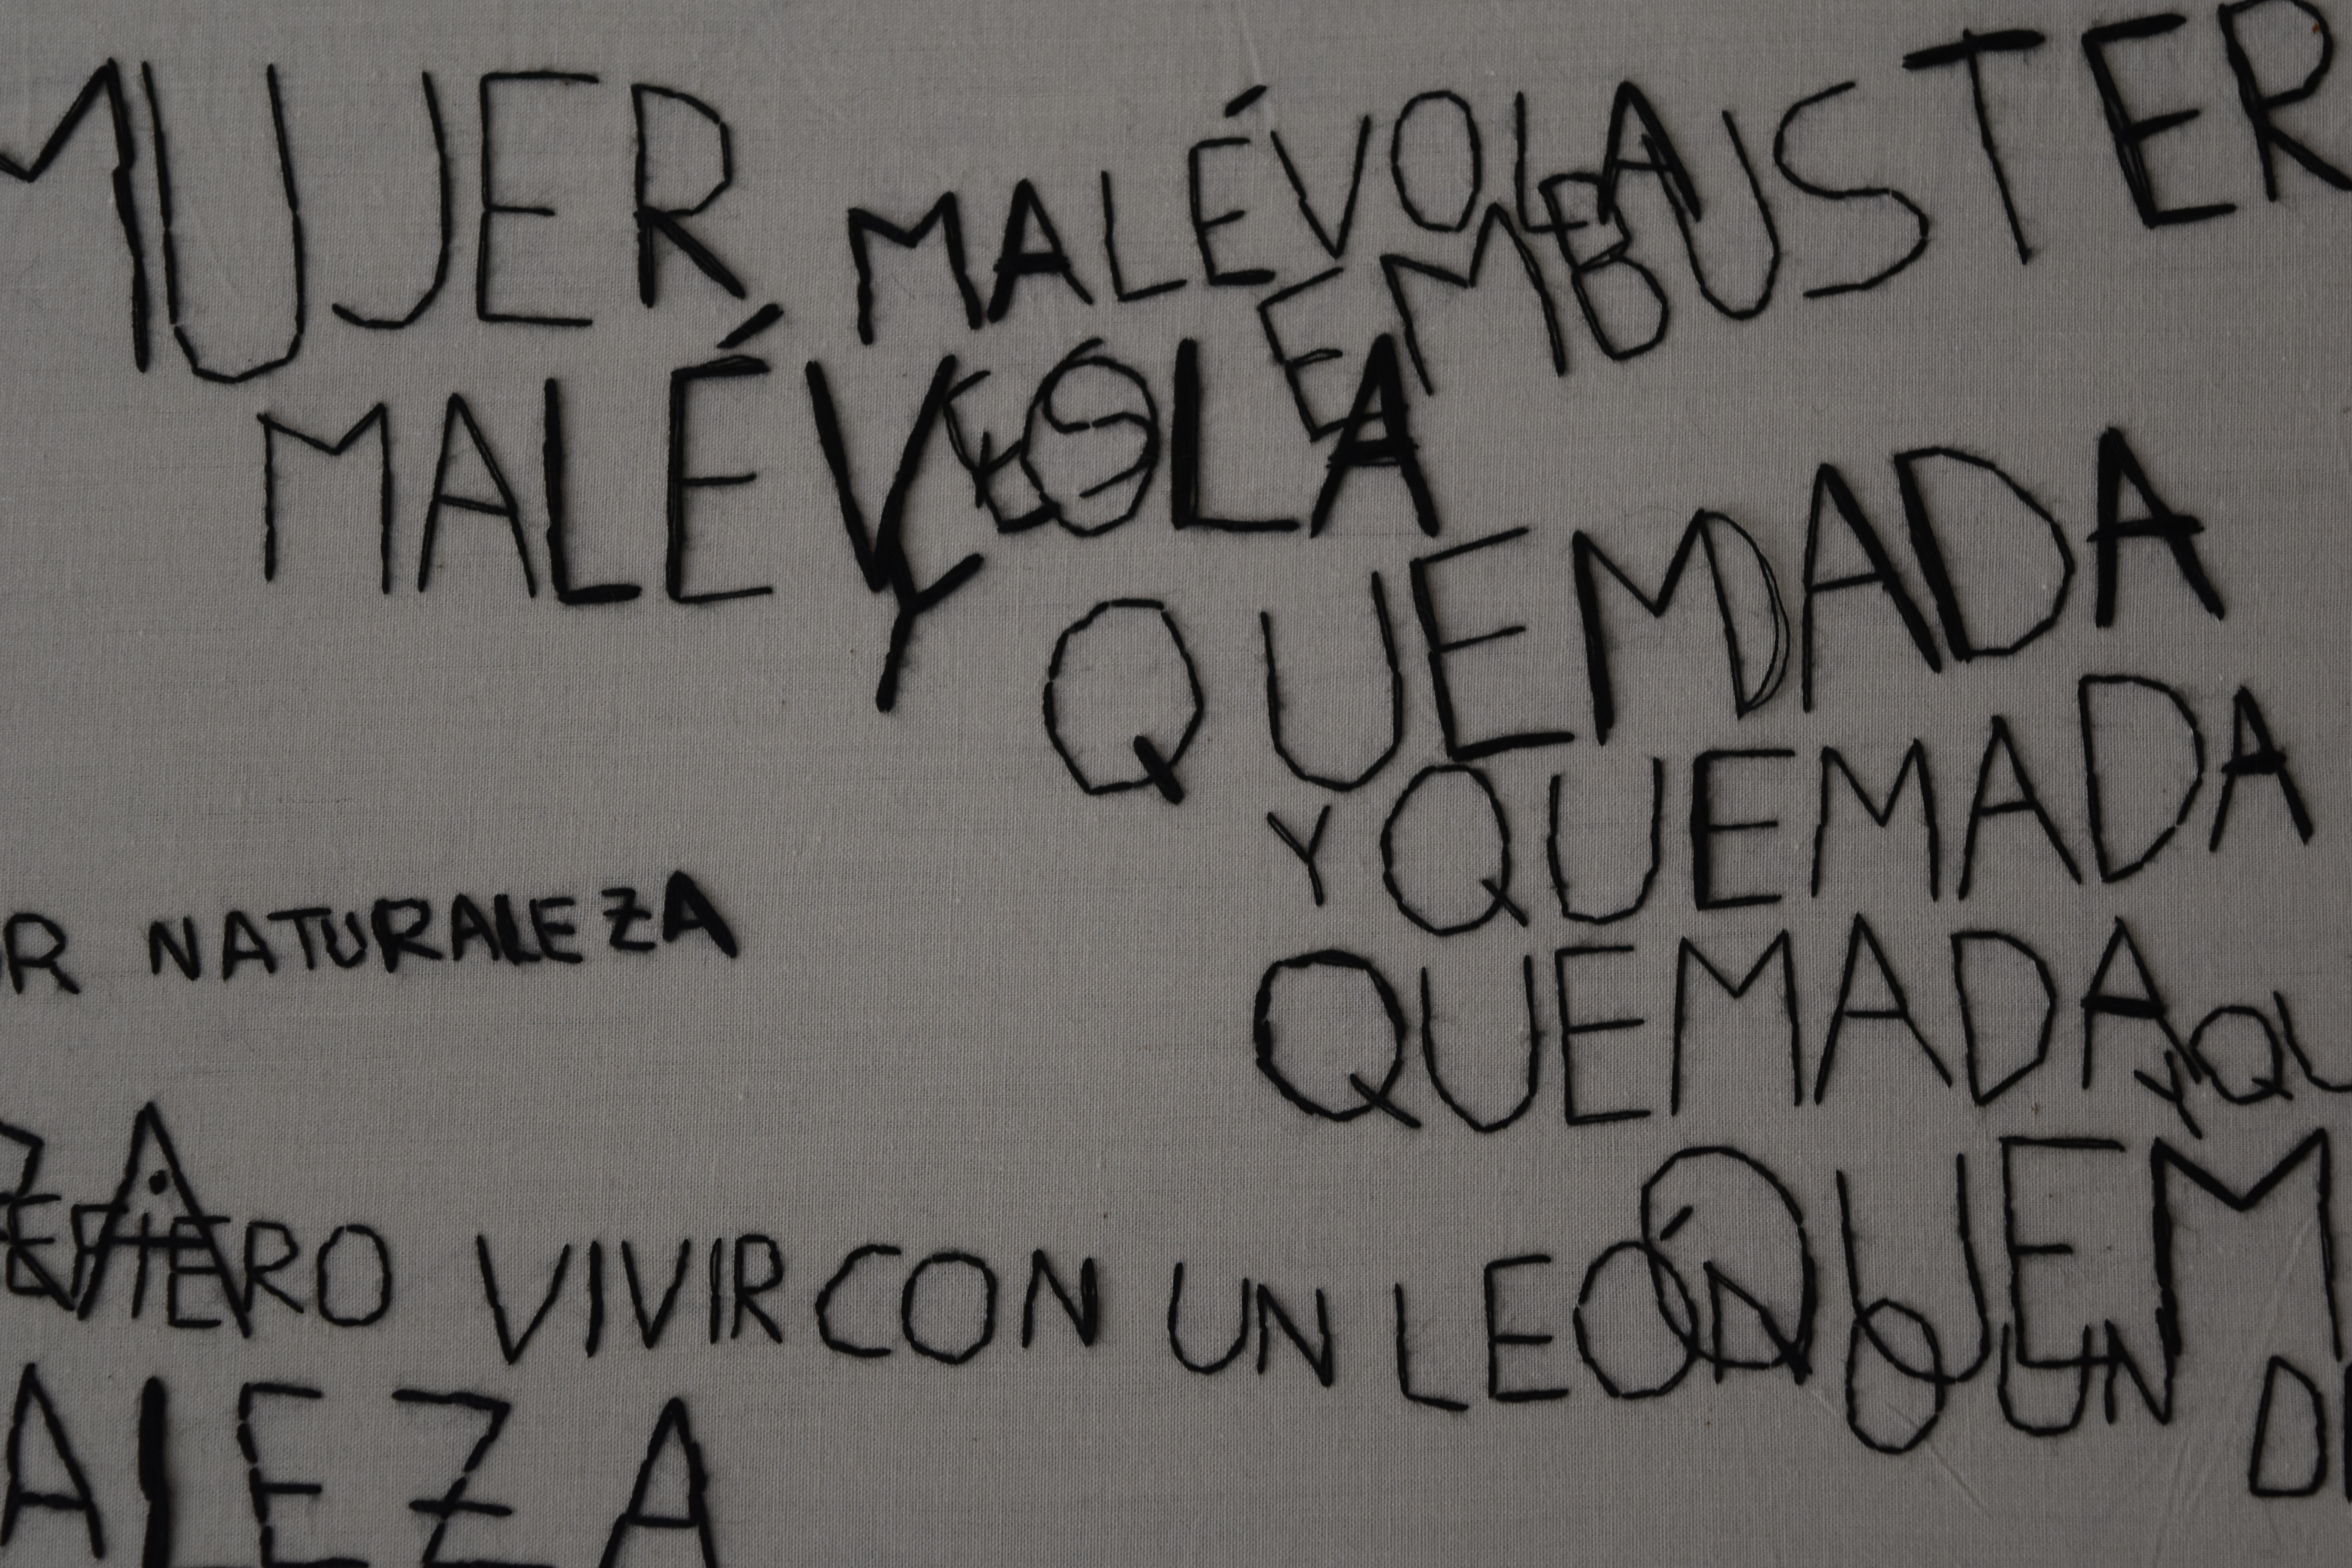 MUJER MALÉVOLA
EMBUSTER
MALÉVOLA
ES
Y QUEMADA
Y QUEMADA
R NATURALEZA
QUEMADA
Y QU
ZA
QUEM
EFIERO VIVIR CON UN LEÓN O UN D
ALEZA